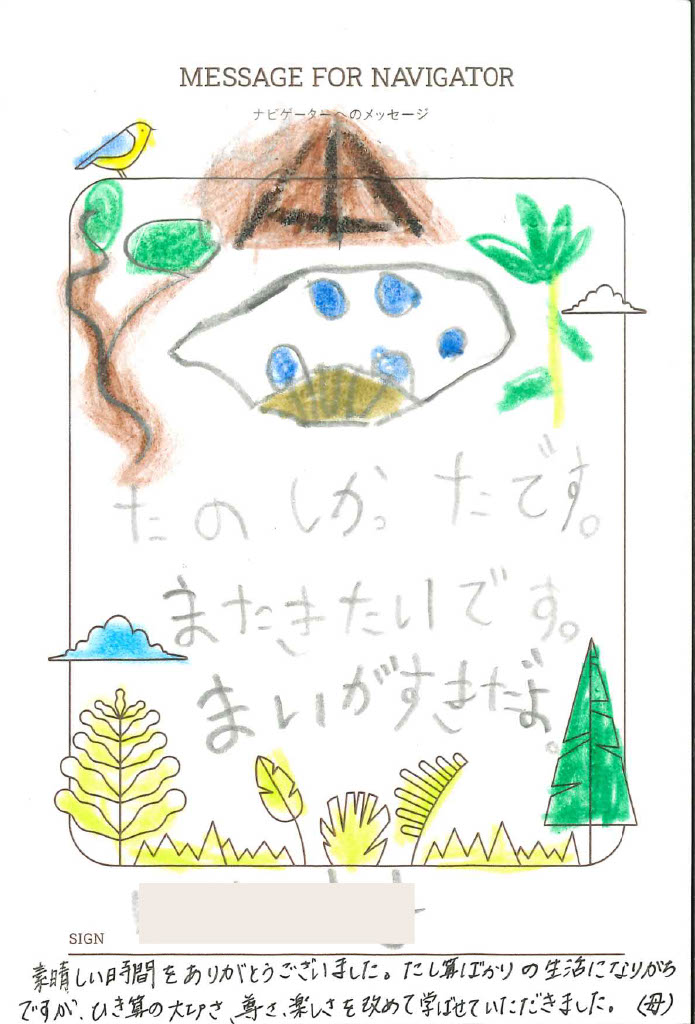 MESSAGE FOR NAVIGATOR
ナビゲーターへのメッセージ
たのしかったです。
またきたいです。
まいがすきだよ。
SIGN
素晴しい時間をありがとうございました。たし算ばかりの生活になりがち
ですが、ひき算の大切さ、尊さ、楽しさを改めて学ばせていただきました。(母)